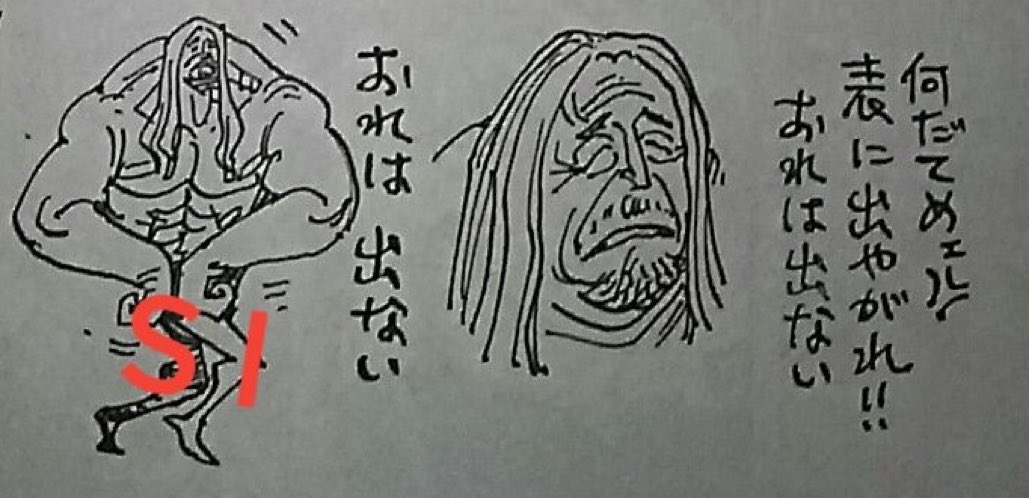 何だてめェル
表に出やがれ!!
おれは出ない
おれは 出ない
S1